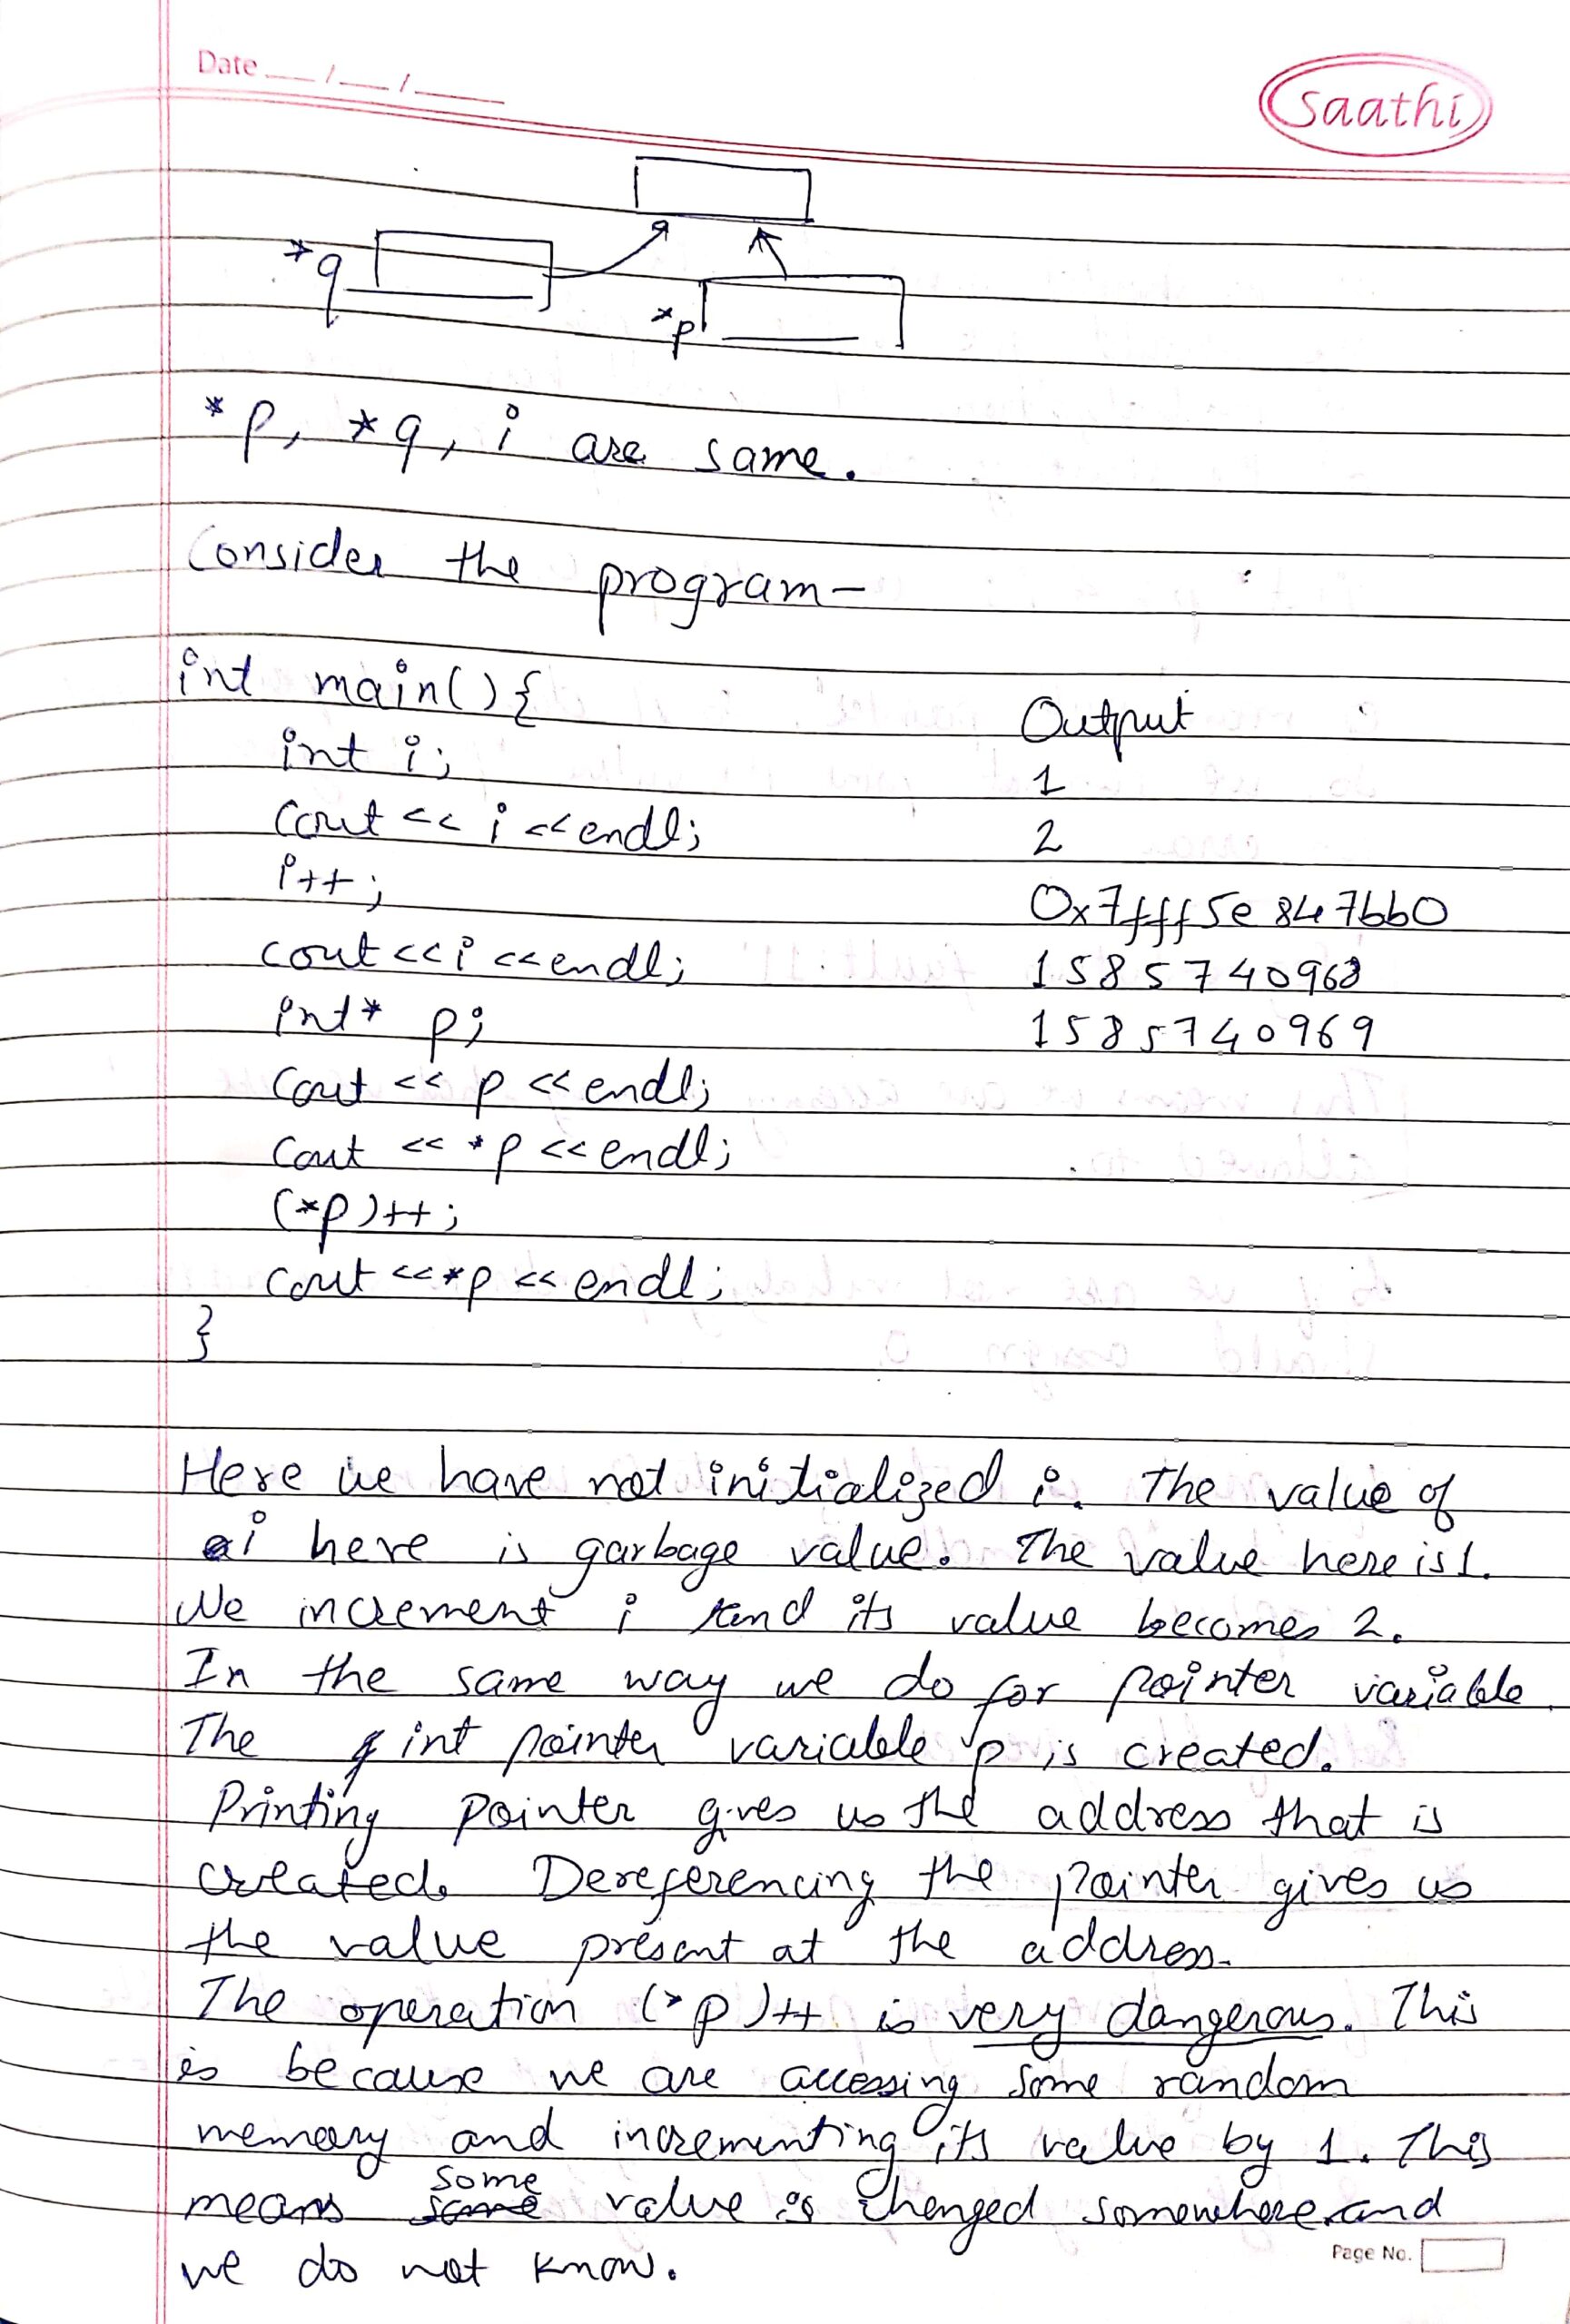 Date __/__/____
Saathi
*q
*p
*p, *q, i are same.
Consider the program-
int main(){
Output
int i;
1
cout << i << endl;
2
i++;
0x7fff5e847bb0
cout << i << endl;
1585740968
int* p;
1585740969
cout << p << endl;
cout << *p << endl;
(*p)++;
cout << *p << endl;
}
Here we have not initialized i. The value of
i here is garbage value. The value here is 1.
We increment i and its value becomes 2.
In the same way we do for pointer variable.
The int pointer variable p is created.
Printing pointer gives us the address that is
created. Dereferencing the pointer gives us
the value present at the address.
The operation (*p)++ is very dangerous. This
is because we are accessing some random
memory and incrementing its value by 1. This
means some value is changed somewhere and
we do not know.
Page No.